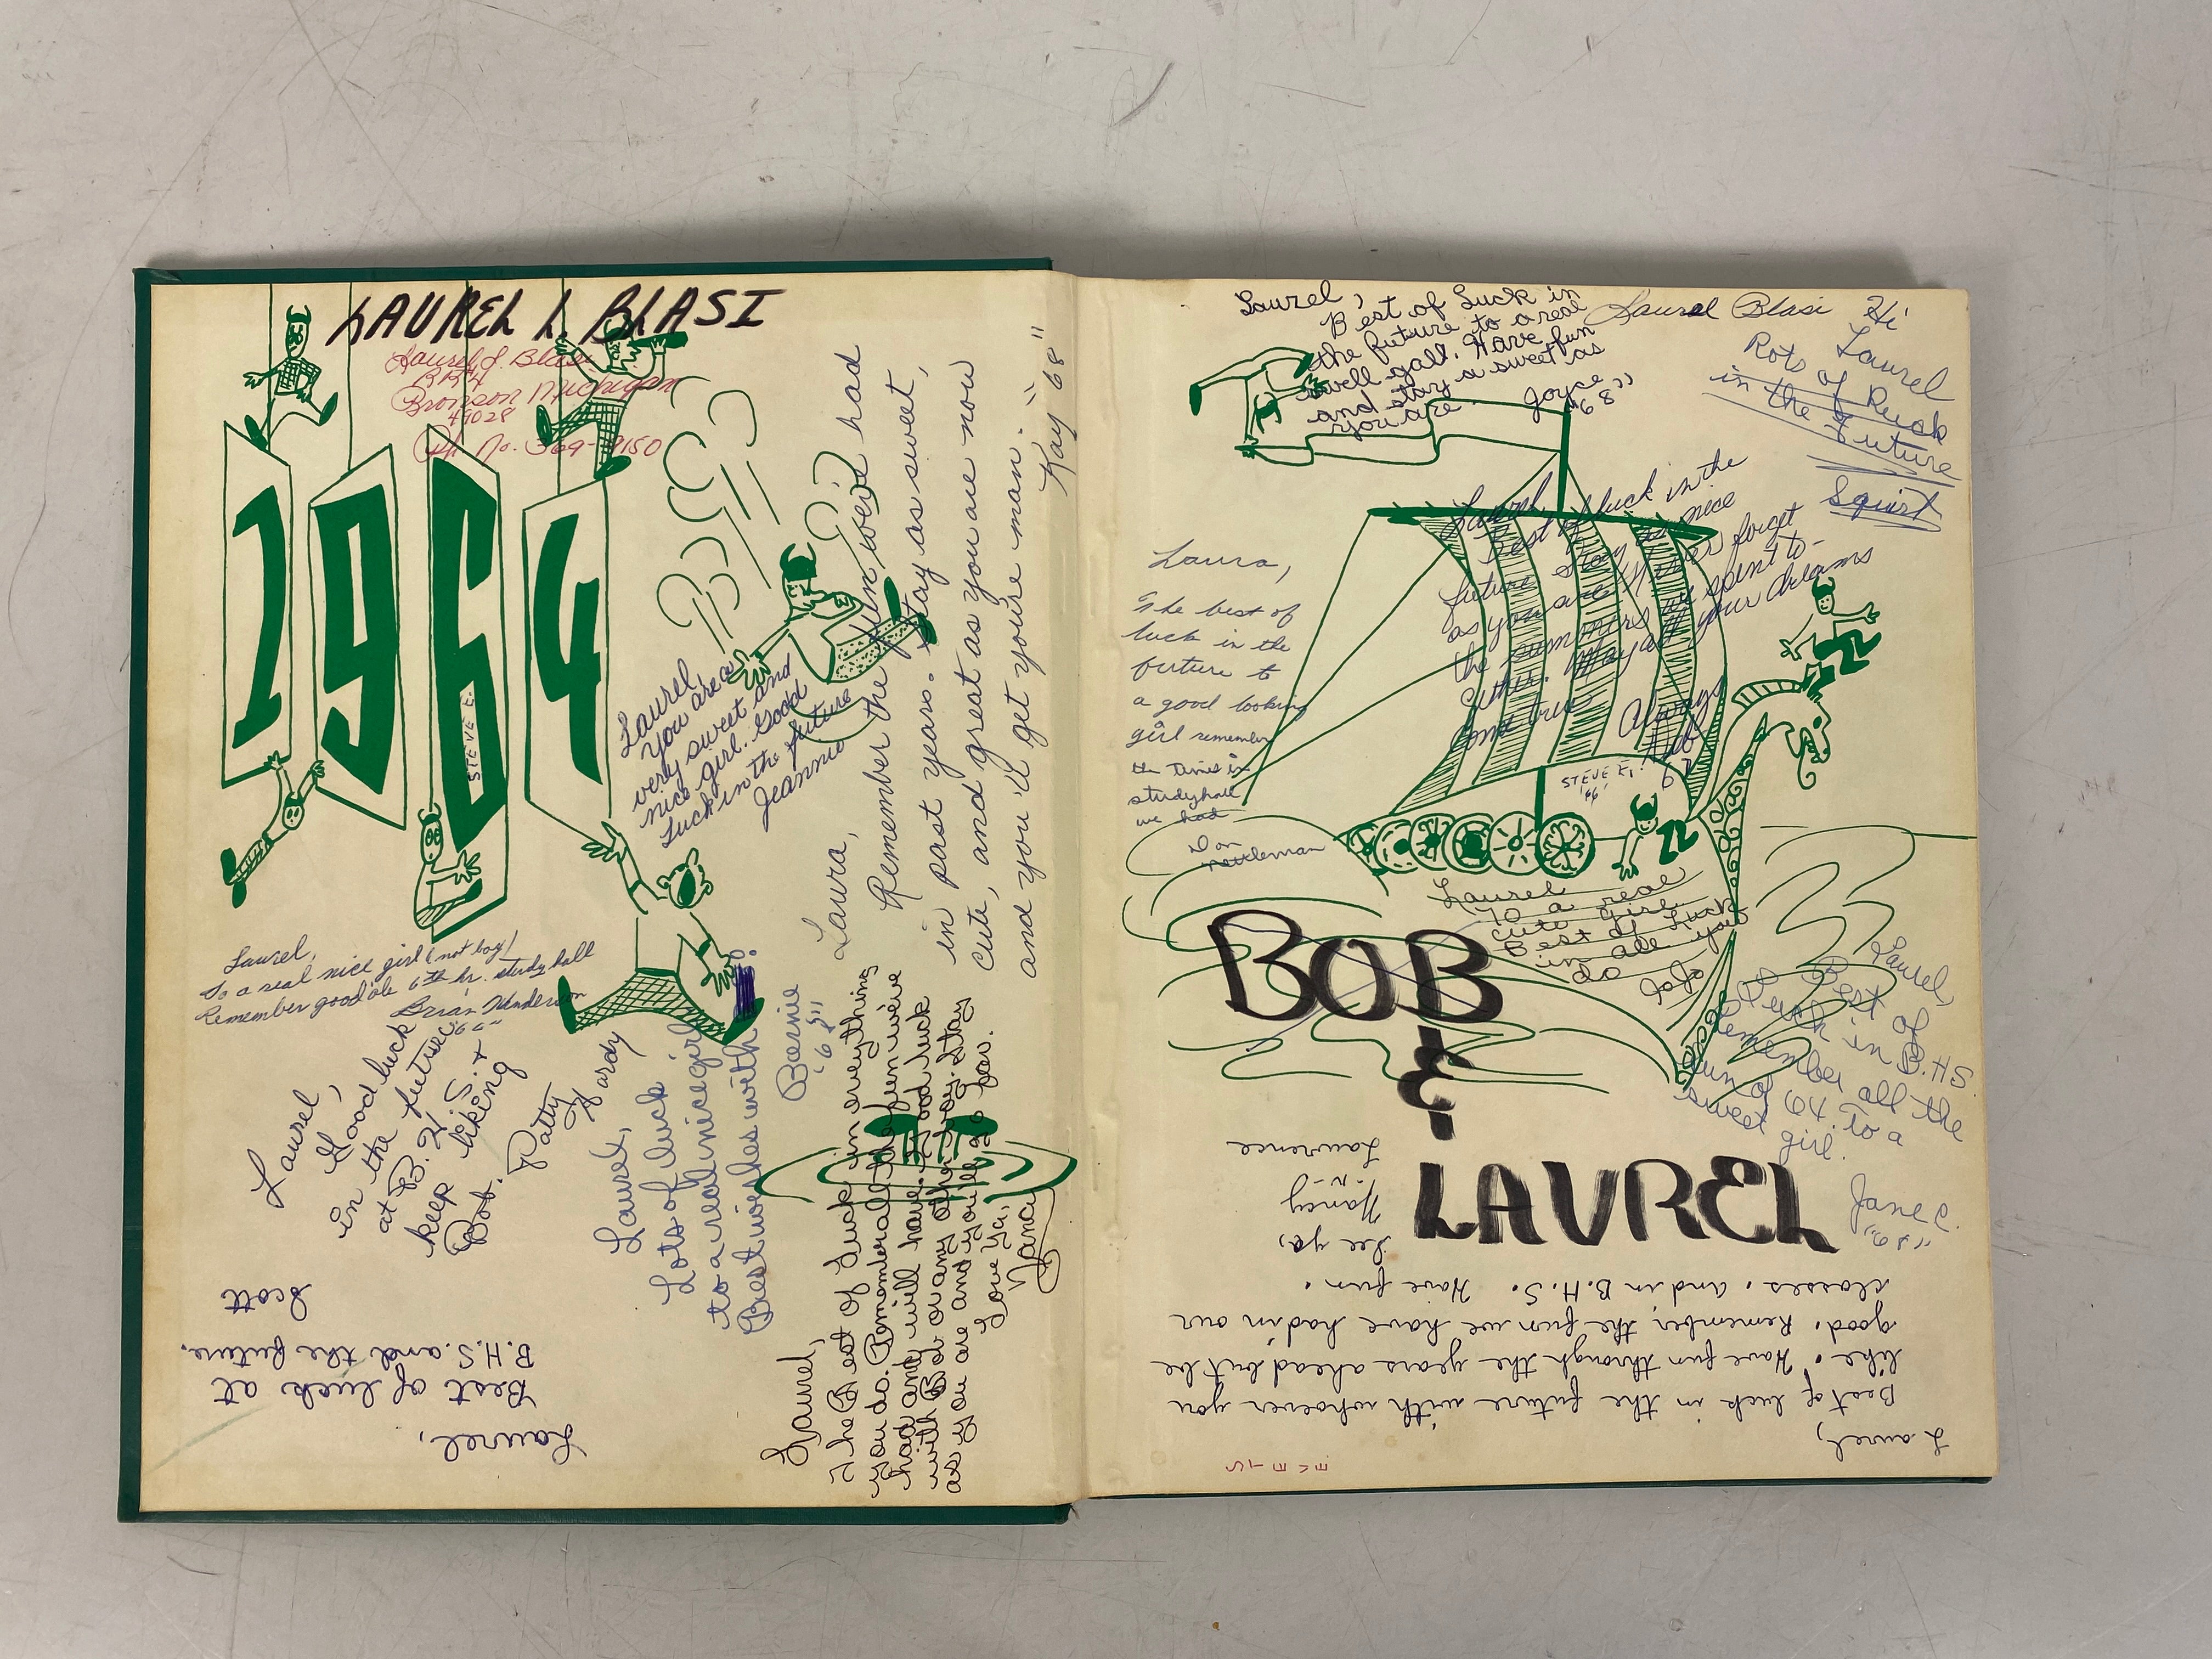 LAUREL L. BLASI
Laurel L. Blasi
RR4
Bronson Michigan
49028
Ph. No. 369-9150
1964
STEVE E.
Laurel,
you are a
very sweet and
nice girl. Good
Luck in the future
Jeannie
Laura,
Remember the fun, we've had
in past years. Stay as sweet,
cute, and great as you are now
and you'll get you're man.
Kay "68"
Laurel,
To a real nice girl (not boy)
Remember good ole 6th hr. study hall
Brian Henderson
"66"
Laurel,
Good luck
in the future
at B.H.S. +
keep liking
Bob.
Patty
Hardy
Laurel,
Lots of luck
to a real nice girl
Best wishes with
Bernie
'68"
Laurel,
The Best of Luck in everything
you do. Remember all the fun we've
had and will have. Good luck
with Bob or any other boy. Stay
as you are and you'll go far.
Love Ya,
Nancy
Laurel,
Best of luck at
B.H.S. and the future.
Scott
Laurel,
Best of Luck in
the future to a real
swell gall. Have fun
and stay a sweet as
you are.
Joyce
"68"
Laurel Blasi
Hi
Laurel
Rots of Ruck
in the Future
Squirt
Laurel,
Best of luck in the
future stay as nice
as you are. Never forget
the memories we spent to-
gether. May all your dreams
come true
Always
Laura,
The best of
luck in the
furture to
a good looking
girl remember
the times in
studyhall
we had
Don
STEVE E.
'66'
Laurel
To a real
cute girl.
Best of Luck
in all you
do
JoJo
BOB
&
LAUREL
Laurel,
Best of
Luck in B.H.S.
Remember all the
fun of 64. To a
sweet girl.
Jane E.
"68"
Laurel,
Best of luck in the future with whoever you
like. Have fun through the years ahead but be
good. Remember the fun we have had in our
classes. And in B.H.S. Have fun.
See ya,
Nancy
"N"
Lawrence